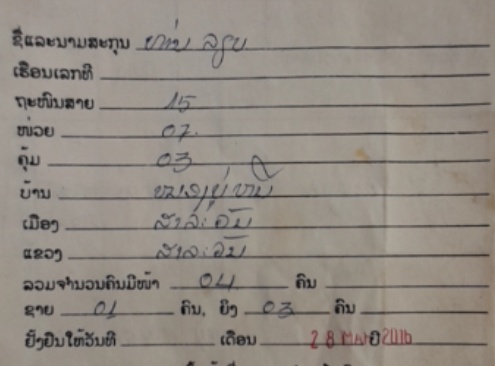 ຊື່ແລະນາມສະກຸນ ທ່ານ ລຽບ
ເຮືອນເລກທີ
ຖະໜົນສາຍ 15
ໜ່ວຍ 07
ຄຸ້ມ 03
ບ້ານ
ເມືອງ ສາລະວັນ
ແຂວງ ສາລະວັນ
ລວມຈຳນວນຄົນມີໜ້າ 04 ຄົນ
ຊາຍ 01 ຄົນ, ຍິງ 03 ຄົນ
ຢັ້ງຢືນໃຫ້ວັນທີ ເດືອນ 28 MAY ປີ 2016